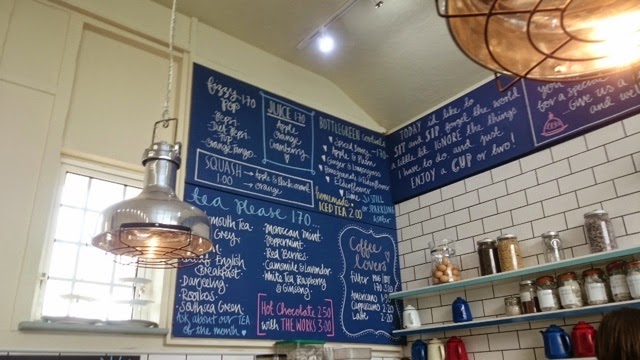 fizzy
Pop 1.70
Pepsi
Diet Pepsi
7up
Orange Tango
JUICE 1.70
Apple
Orange
Cranberry
SQUASH → Apple & Blackcurrant
1.00 → orange
BOTTLEGREEN cordials
Spiced Berry 1.70
Apple & Plum
Ginger & Lemongrass
Pomegranate & Elderflower
Elderflower
Lime
STILL
OR SPARKLING
water
homemade
ICED TEA 2.00
tea please 1.70
mouth Tea
Grey
English
Breakfast
Darjeeling
Rooibos
Southsea Green
Ask about our TEA
of the month
Moroccan Mint
Peppermint
Red Berries
Camomile & Lavender
White Tea, Raspberry
& Ginseng
Hot Chocolate 2.50
with THE WORKS 3.00
Coffee
Lovers
filter
1.70
Americano
Cappuccino 2.20
Latte 2.20
TODAY i'd like to
SIT and SIP, forget the world
a little bit. IGNORE the things
I have to do and just
ENJOY a CUP or two!
you
for a special
Give us a
and we